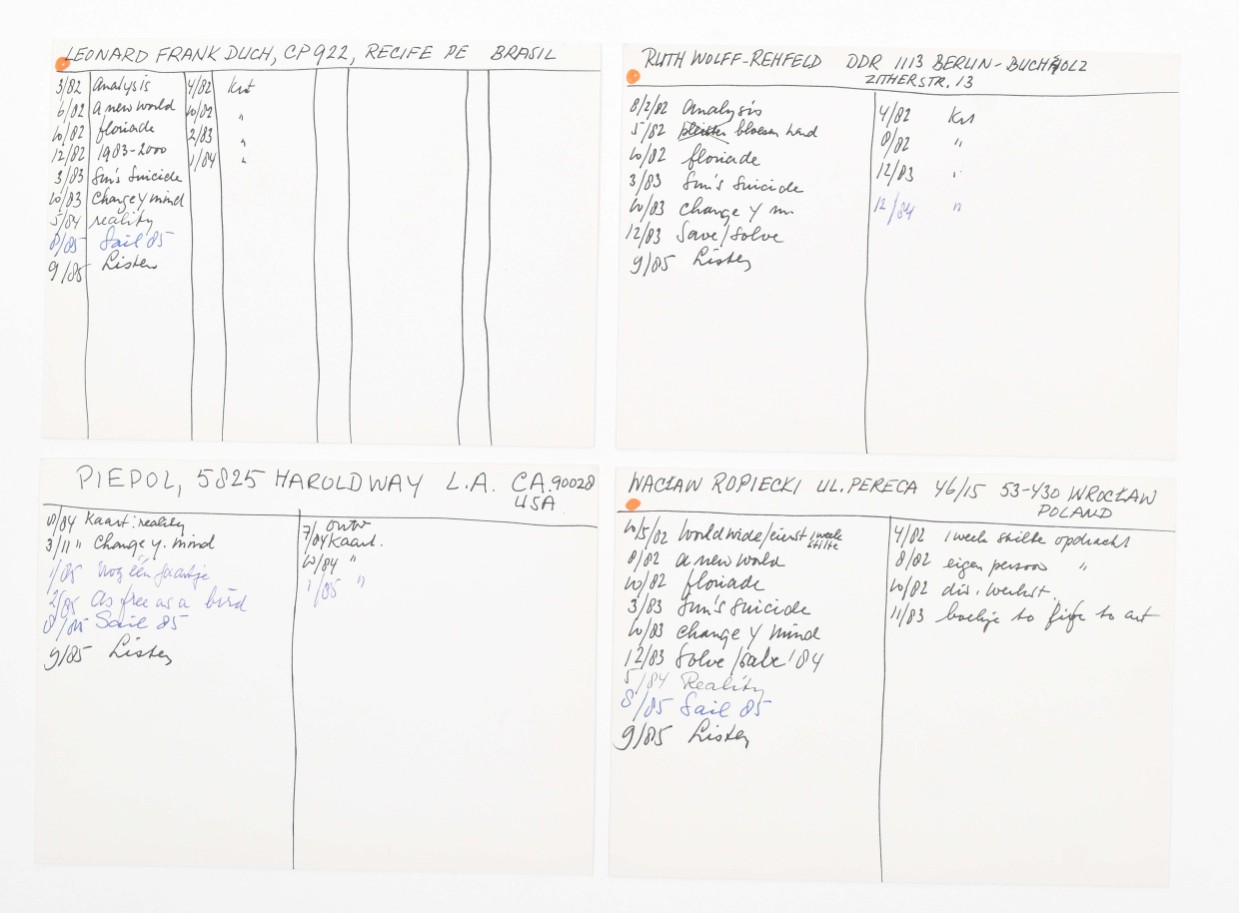 LEONARD FRANK DUCH, CP 922, RECIFE PE BRASIL
3/82 Analysis 4/82 Krt
6/82 A new world 10/82 "
10/82 floriade 2/83 "
12/82 1983-2000 1/84 "
3/83 Sun's Suicide
10/83 Change y mind
5/84 reality
8/85 Sail 85
9/85 Listen
RUTH WOLFF-REHFELD DDR 1113 BERLIN-BUCHHOLZ
ZITHERSTR. 13
8/2/82 Analysis 4/82 Krt
5/82 bloesem hand 8/82 "
10/82 floriade 12/83 "
3/83 Sun's Suicide 12/84 "
10/83 Change y m.
12/83 Save/Solve
9/85 Listen
PIEPOL, 5825 HAROLDWAY L.A. CA. 90028
USA
8/84 Kaart: reality
3/11 " Change y. mind 7/84 Kaart.
1/85 nog één gaatje 10/84 "
2/85 As free as a bird 1/85 "
8/85 Sail 85
9/85 Listen
WACŁAW ROPIECKI UL. PERECA 46/15 53-430 WROCŁAW
POLAND
10/5/82 Worldwide/eerst 1 week stilte 4/82 1 week stilte opdracht
8/82 a new world 8/82 eigen persoon "
10/82 floriade 10/82 div. werkst.
3/83 Sun's Suicide 11/83 boekje to to art
10/83 Change y mind
12/83 Solve/salv '84
5/84 Reality
8/85 Sail 85
9/85 Listen